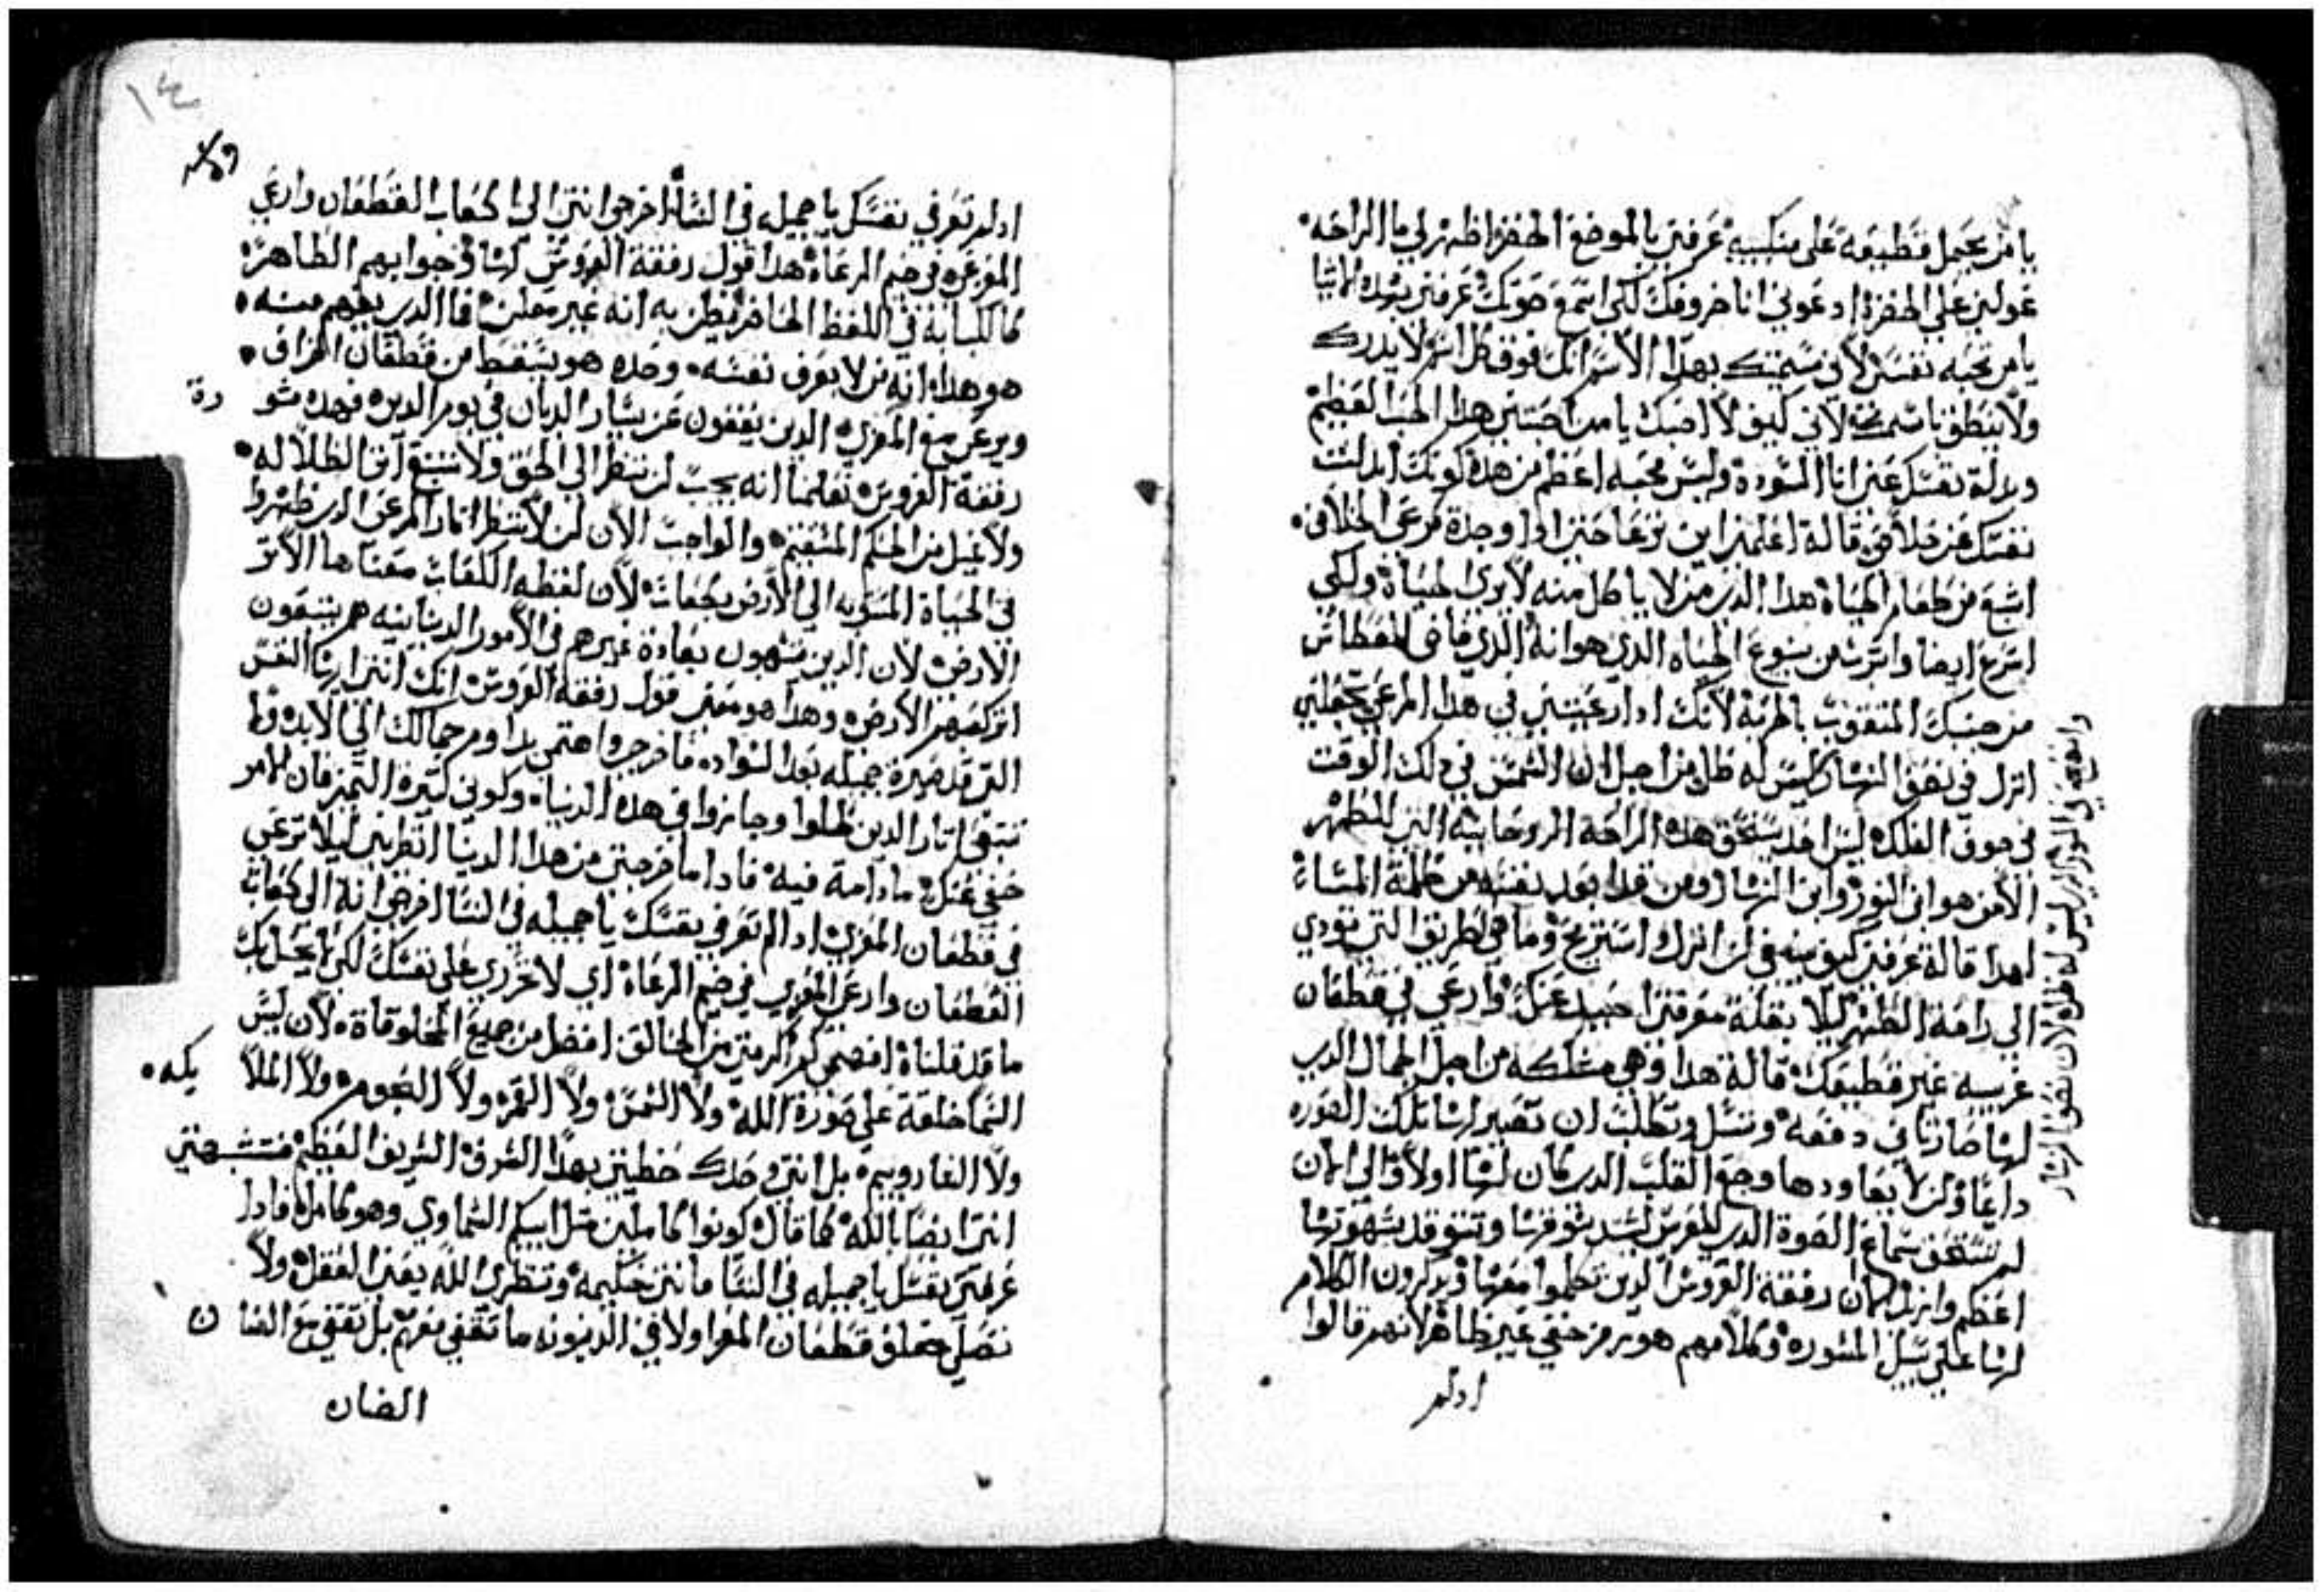 يا من يحمل قطيعه على منكبيه عرفني بالموضع الخضر اظهر لي ما الراحه
عولني على الخضرة ادعوني انا خروفك لكي اسمع صوتك عرفني بهده الاشيا
يا من تحبه نفسي لاني سميتك بهدا الاسم انك فوق كل اسم لا يدرك
ولا ينطق باسمك لاني كيف لا احبك يا من احبتني هدا الحب العظيم
وبدلة نفسك عني انا السودة وليس محبه اعظم من هده كونك ابدلت
نفسك عن خلاصي قالة اعلمني اين ترعا حتى ادا وجدة مرعى الخلاص
اشبع من طعام الحياة هدا الدي من لا ياكل منه لا يرى الحياة ولكي
اسرع ايضا واشرب من ينبوع الحياه الدي هو انة الدي فاض للعطاش
من جنبك المثقوب بالحربة لانك ادا رعيتني في هدا المرعى تجعلني
انزل في نصف النهار ليس له ظل من اجل ان الشمس في دلك الوقت
في فوق الفلك ليس احد يستحق هده الراحة الروحانية التي للظهر
الا من هو ابن النور وابن النهار ومن قد ابعد نفسه من ظلمة المساء
لهدا قالة عرفني كيف ينبغي لي ان انزل استريح وما هي الطريق التي تودي
الى راحة الظهر ليلا بقلة معرفتي احيد عنك وارعى في قطعان
غريبه غير قطيعك قالة هدا وهي متمسكه من اجل الجمال الدي
لها صار تاني دفعه وتسل وتطلب ان تصير لها تلك الصوره
دايما وكي لا يعاودها وجع القلب الدي كان لها اولا والى الان
لم تستحق سماع الصوة الدي للعريس لشد شوقها وتتوقد شهوتها
اعظم وايضا كان رفقة العروس الدين تكلموا معها ويدكرون الكلام
لها على سبيل المشوره وكلامهم هو رمز خفي غير ظاهر لانهم قالوا
ادلم
وايضا في النور ليس له ظل لان نصف النهار
١٤
ادلم تعرفي نفسك يا جميله في النساء اخرجي انتي الى كعاب القطعان وارعي
المعزى في خيم الرعاة هدا قول رفقة العروس لها وجوابهم الظاهر
كالكبانة في اللفظ الحاضر يظن به انه غير معلن فاما الدي يفهم منه
هو هدا انه من لا يعرف نفسه وحده هو يسقط من قطعان الخراف
ويرعى مع المعزى الدين يقفون عن يسار الديان في يوم الدين فهده مشو رة
رفقة العروس تعلمنا انه يجب لن ننظر الى الحق ولا نتبع اثر الظلاله
ولا نميل من الحكم المستقيم والواجب الان لن لا ننظر اثار المرعى الدي ظهروا
في الحياة المسويه الى الارض بكعاب لان لفظه الكعاب معناها الاثر
الارضي لان الدين يشبهون بعادة غيرهم في الامور الدنيانيه هم يتبعون
اثر كعبهم الارض وهدا هو معنى قول رفقة العروس انك انتي ايتها النفس
التي قد صيرة جميله بعد السواد فاخرجي واهتمي بدوام جمالك الى الابد ولا
تتبعي اثار الدين ظلوا وجازوا في هده الدنيا وكوني كتيرة التميز فان الامر
خفي عنك مادامة فيه فادا ما خرجتي من هدا الدنيا انظريني ليلا ترعي
في قطعان المعزى اد لم تعرفي نفسك يا جميله في النسا اخرجي انة الى كعاب
القطعان وارعي المعزى في خيم الرعاة اي لا تخزري على نفسك لكي لا يحل بك
ما قد قلناه افهمي كم اكرمتي من الخالق افضل من جميع المخلوقاة لان ليس
السما خلقة على صورة الله ولا الشمس ولا القمر ولا النجوم ولا الملا يكه
ولا الشاروبيم بل انتي وحدك حظيتي بهدا الشرف الشريف العظيم فتشبهتي
انتي ايضا بالله كما قال كونوا كاملين مثل ابيكم السماوي وهو كامل فادا
عرفتي نفسك يا جميله في النسا فانتي حكيمه وتنظري الله يعني العقل ولا
نصل خلف قطعان المعزا ولا في الدينونه ما تقفي معهم بل تقفي مع الضا ن
الضان